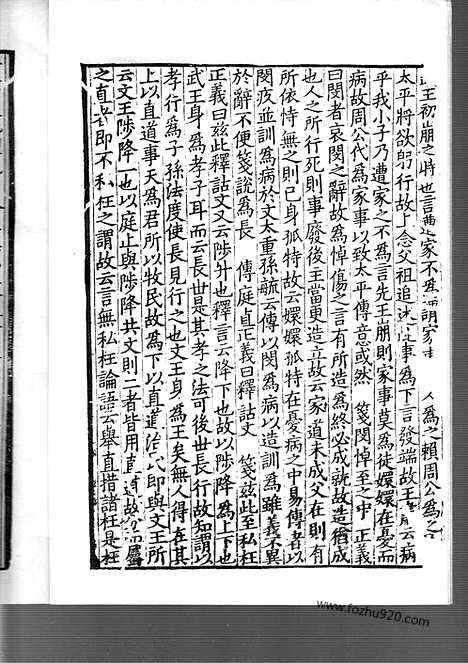 王初崩之時也言曲 家不為 明家 人為之賴周公為之
太平將欲躬行故上念父祖追述 事為下言發端故王 云病
乎我小子乃遭家之不為言先王崩則家事莫為徒嬛嬛在憂而
病故周公代為家事以致太平傳意或然 箋閔悼至之中 正義
曰閔者哀閔之辭故為悼傷之言有所造為終必成就故造猶成
也人之所行死則事廢後王當更造立故云家道未成父在則有
所依恃無之則己身孤特故云嬛嬛孤特在憂病之中易傳者以
閔疚並訓為病於文太重孫毓云傳以閔為病以造訓為 雖義不異
於辭不便箋說為長 傳庭直 正義曰釋詁文 箋茲此至私枉
正義曰茲此釋詁文又云陟升也釋言云降下也故以陟降為上下也
武王身為孝子耳而云長世是其孝之法可後世長行故知謂以
孝行為子孫法度使長見行之也文王身為王矣無人得在其
上以直道事天為君所以牧民故為下以直道治 即與文王所
云文王陟降一也以庭止與陟降共文則二者皆用直道故 屬
之直 即不私枉之謂故云言無私枉論語云舉直措諸枉是枉
www.fozhu920.com